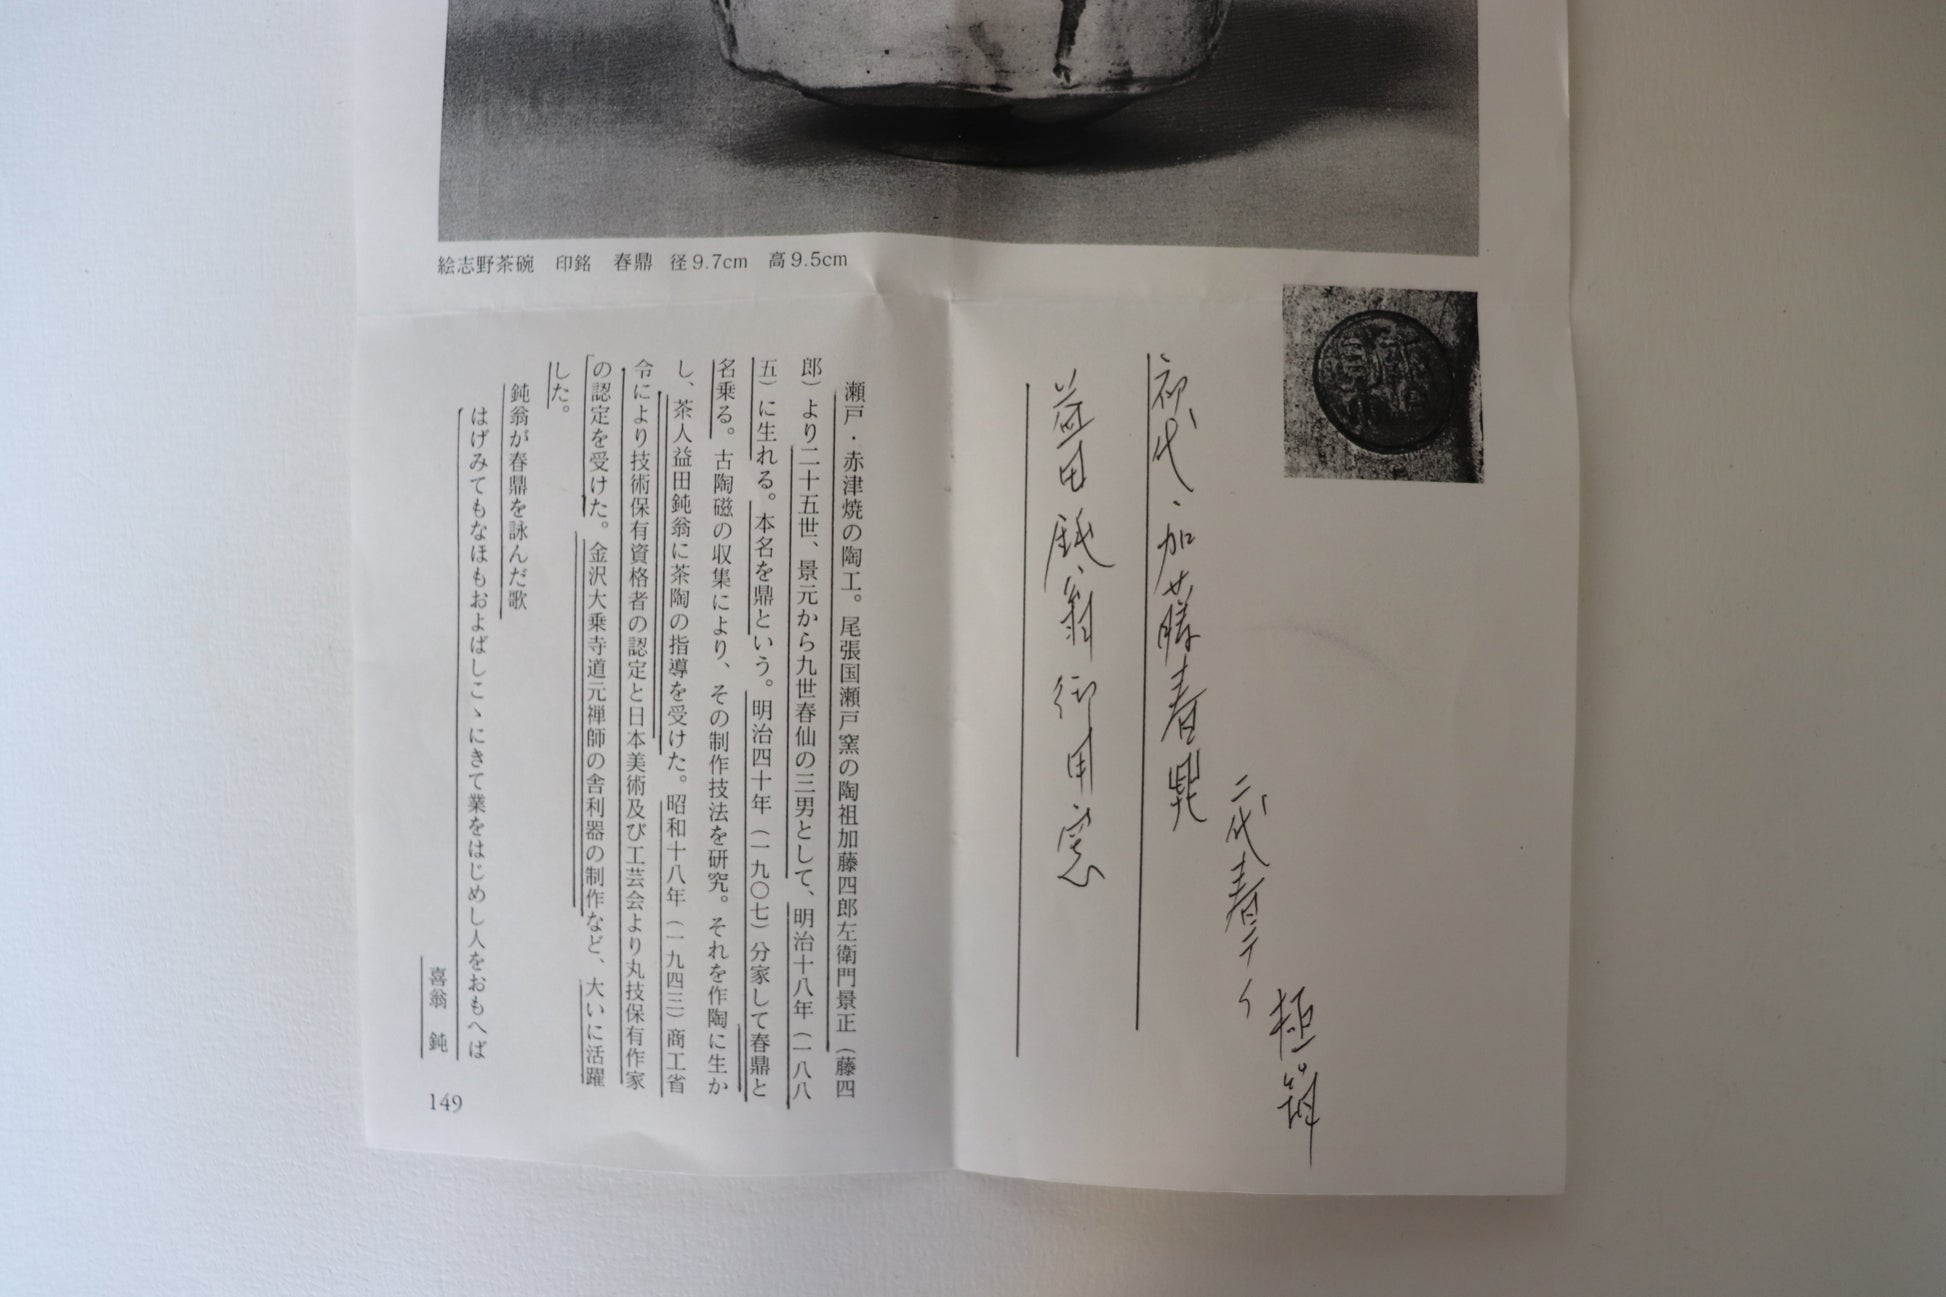 絵志野茶碗　印銘　春鼎　径9.7cm　高9.5cm
二代春テイ　極箱
初代、加藤春鼎
益田鈍翁御用窯
瀬戸・赤津焼の陶工。尾張国瀬戸窯の陶祖加藤四郎左衛門景正（藤四
郎）より二十五世、景元から九世春仙の三男として、明治十八年（一八八
五）に生れる。本名を鼎という。明治四十年（一九〇七）分家して春鼎と
名乗る。古陶磁の収集により、その制作技法を研究。それを作陶に生か
し、茶人益田鈍翁に茶陶の指導を受けた。昭和十八年（一九四三）商工省
令により技術保有資格者の認定と日本美術及び工芸会より丸技保有作家
の認定を受けた。金沢大乗寺道元禅師の舎利器の制作など、大いに活躍
した。
鈍翁が春鼎を詠んだ歌
はげみてもなほもおよばしこゝにきて業をはじめし人をおもへば
喜翁　鈍
149